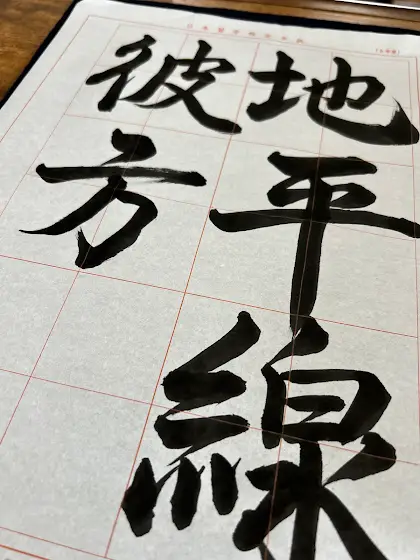 地平線
彼方